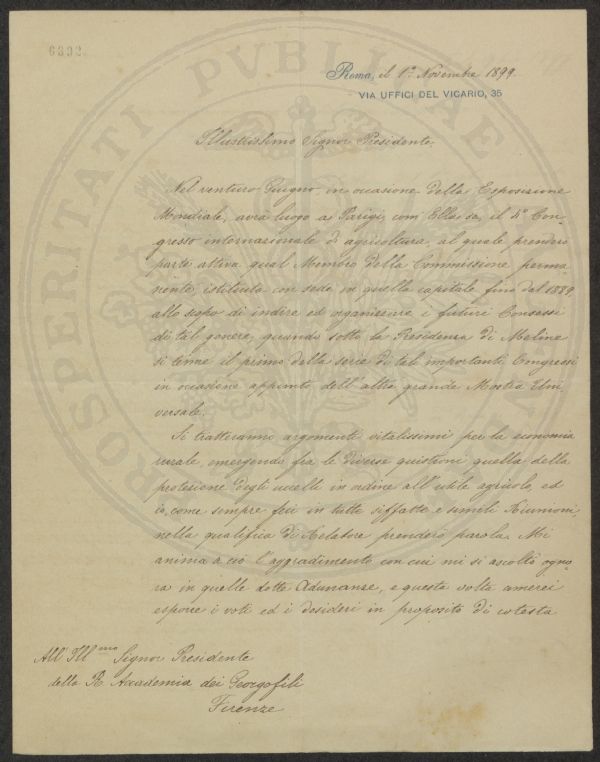 6392.
Roma, il 1º Novembre 1899.
VIA UFFICI DEL VICARIO, 35
Illustrissimo Signor Presidente,
Nel venturo Giugno, in occasione della Esposizione
Mondiale, avrà luogo a Parigi, com' Ella sa, il 4º Con-
gresso internazionale di agricoltura, al quale prenderò
parte attiva qual Membro della Commissione perma
nente, istituita con sede in quella capitale fino dal 1889,
allo scopo di indire ed organizzare i futuri Consessi
di tal genere, quando sotto la Presidenza di Meline
si tenne il primo della serie di tali importanti Congressi
in occasione appunto dell'altra grande Mostra Uni
versale.
Si tratteranno argomenti vitalissimi per la economia
rurale, emergendo fra le diverse quistioni quella della
protezione degli uccelli in ordine all'utile agricolo, ed
io, come sempre feci in tutte siffatte e simili Riunioni,
nella qualifica di Relatore prenderò parola. Mi
anima a ciò l'aggradimento con cui mi si ascoltò ogno-
ra in quelle dotte Adunanze, e questa volta amerei
esporre i voti ed i desideri in proposito di cotesta
All' Ill.mo Signor Presidente
della R. Accademia dei Georgofili
Firenze
PROSPERITATI PVBLICAE